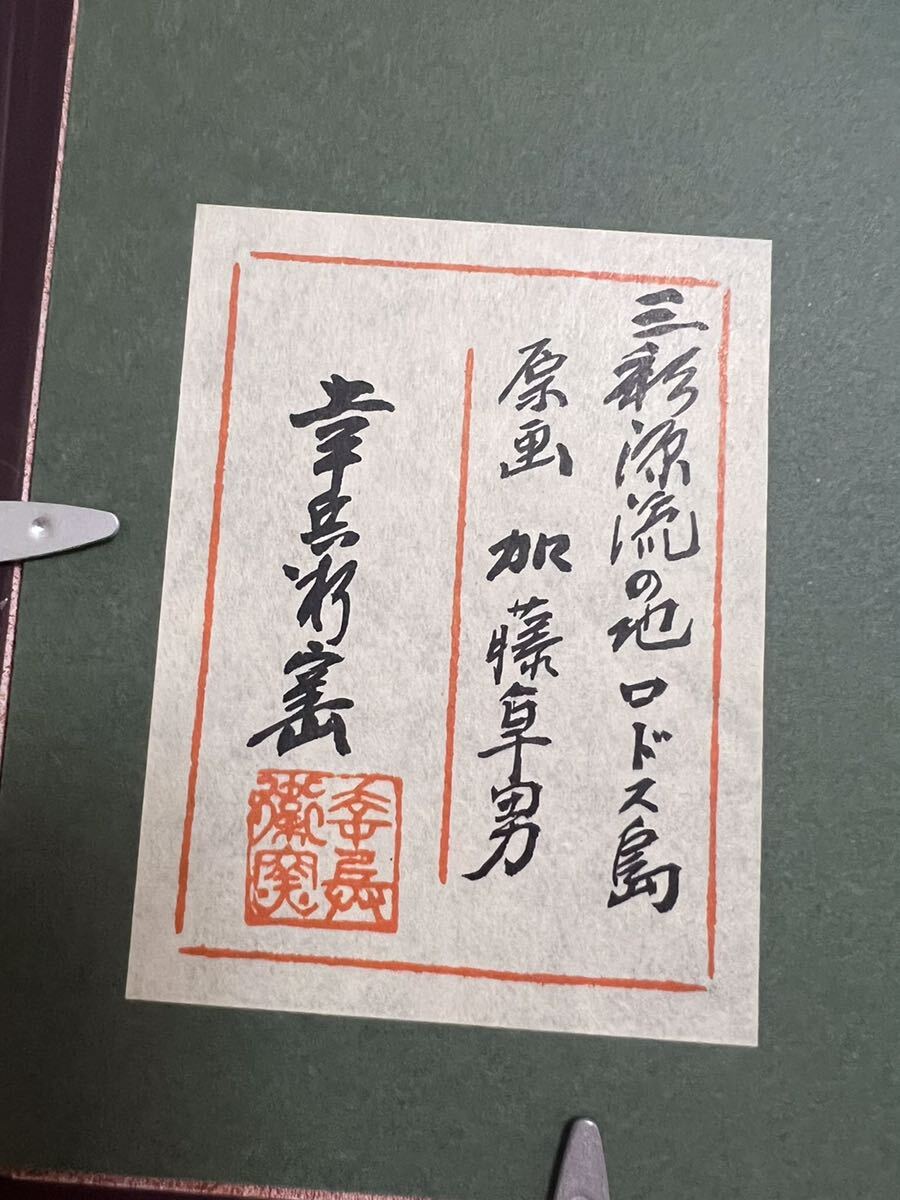 三彩源流の地 ロドス島
原画 加藤卓男
幸兵衛窯
幸兵衛窯